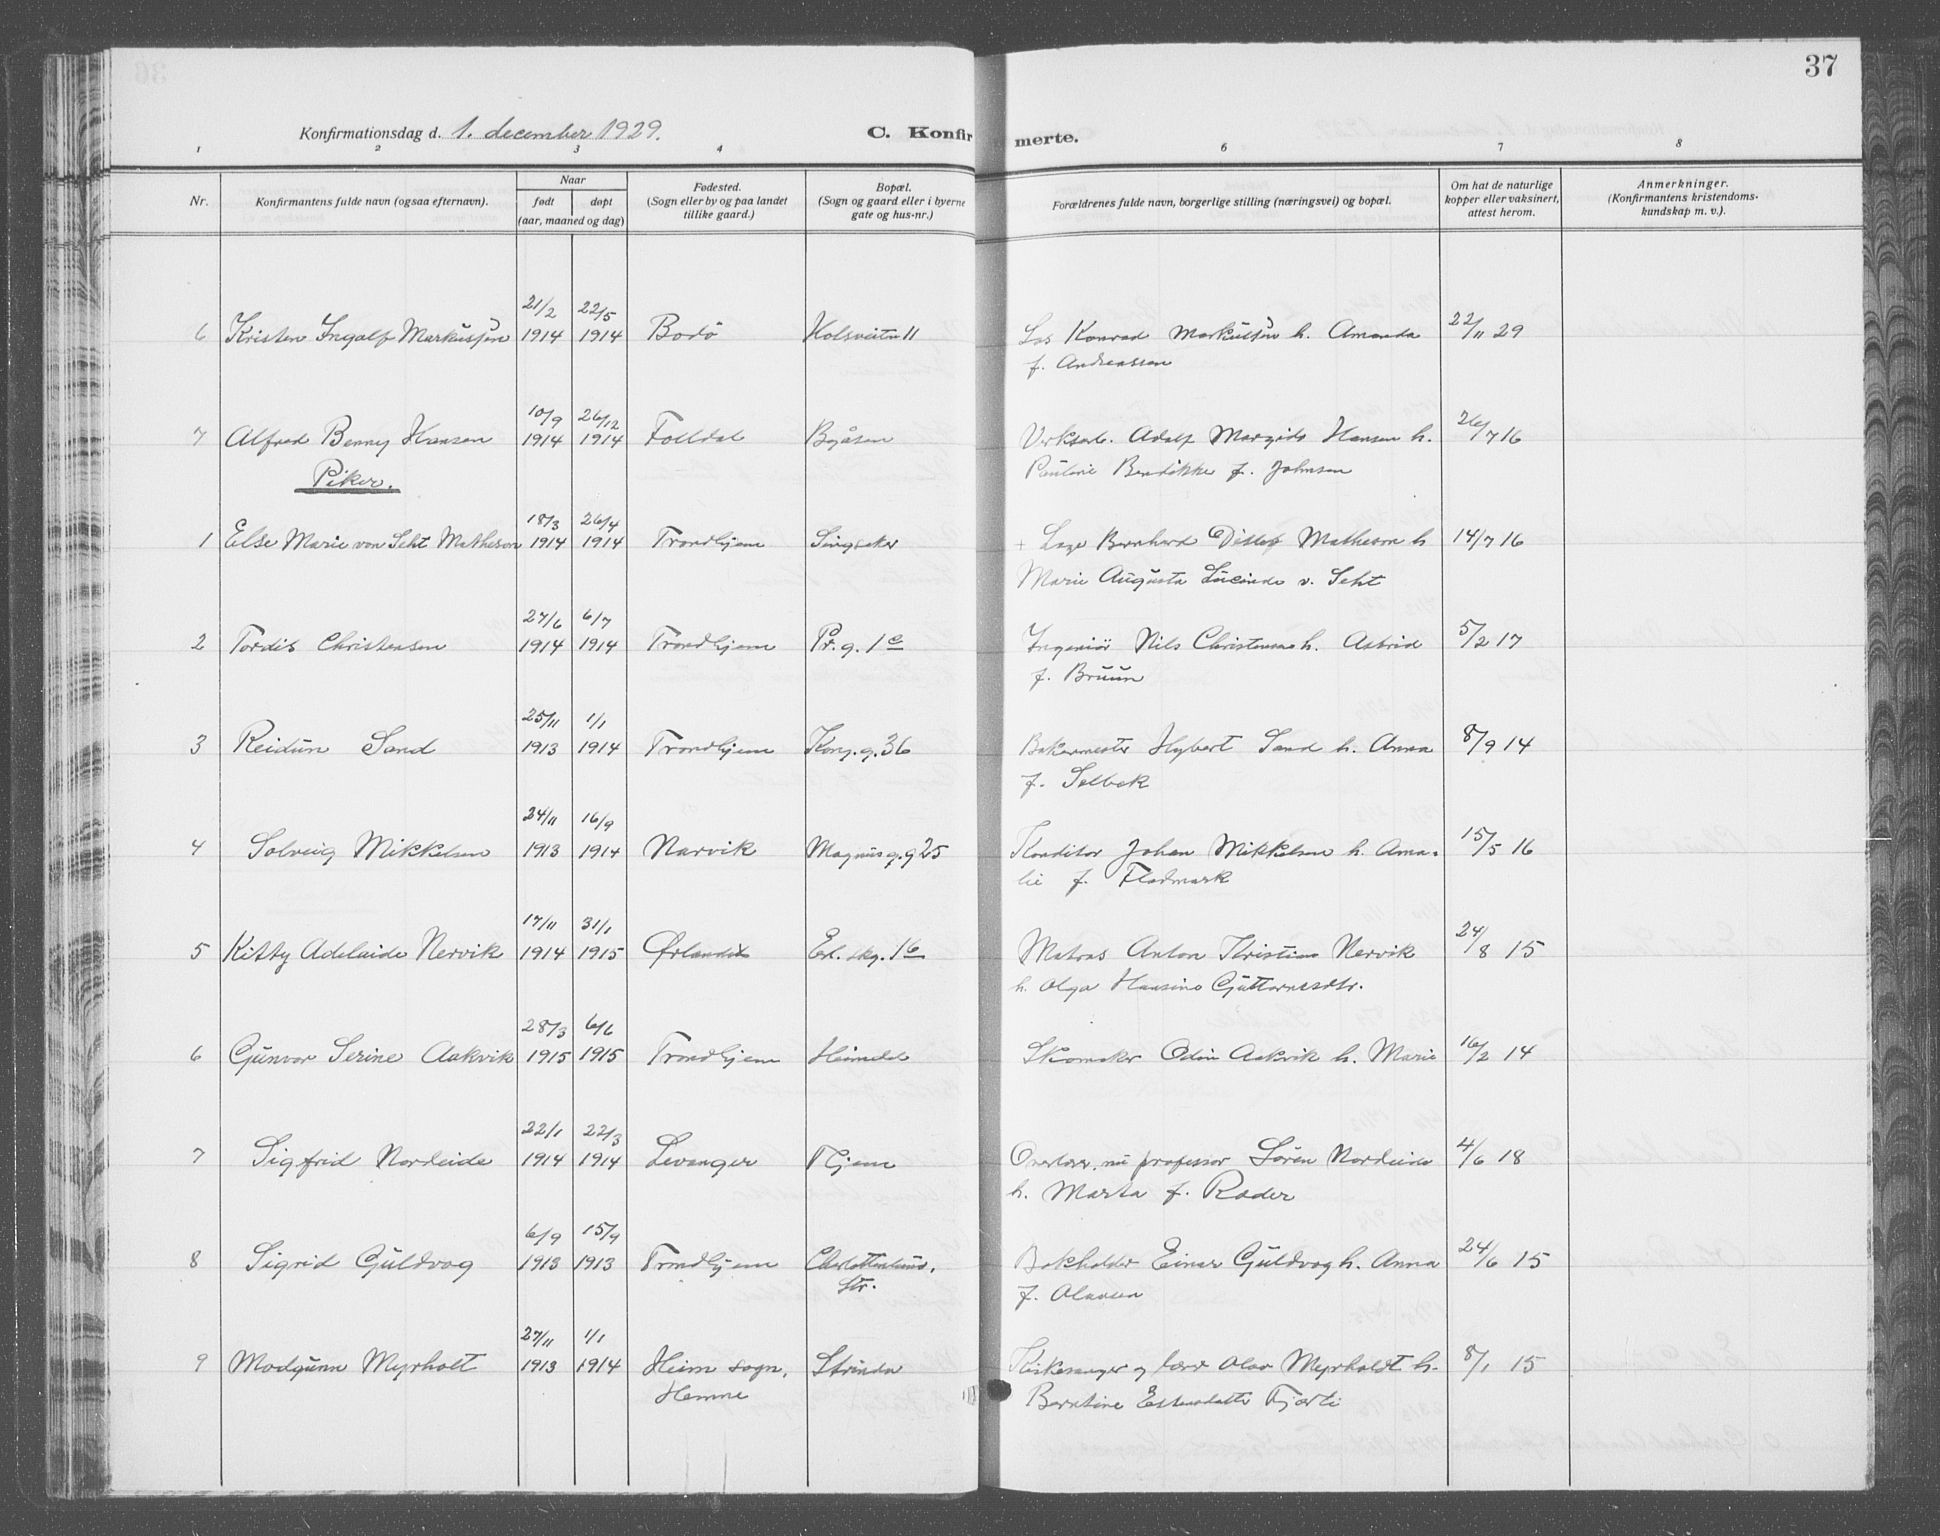 37
Konfirmationsdag d. 1. december 1929.
C. Konfirmerte.
1 2 3 4 6 7 8
Nr.
Konfirmantens fulde navn (ogsaa efternavn).
Naar
født
døpt
(aar, maaned og dag)
Fødested.
(Sogn eller by og paa landet
tillike gaard.)
Bopæl.
(Sogn og gaard eller i byerne
gate og hus-nr.)
Forældrenes fulde navn, borgerlige stilling (næringsvei) og bopæl.
Om hat de naturlige
kopper eller vaksinert,
attest herom.
Anmerkninger.
(Konfirmantens kristendoms-
kundskap m. v.).
21/2 22/5
6 Kristen Ingolf Markussen 1914 1914 Bodö 11 Los Konrad Markussen h. Amanda 22/11 29
f. Andreassen
10/9 26/12
7 Alfred Benny Hansen 1914 1914 Folldal Byåsen Adolf Hansen h. 26/7 16
f. Johnsen
Piker.
18/3 26/4
1 Else Marie von Seht Matheson 1914 1914 Trondhjem Singsaker Bernhard Matheson h 14/7 16
Marie Augusta Lucinde v. Seht
27/6 6/7
2 Tordis Christensen 1914 1914 Trondhjem Pr. g. 1 c Ingeniör Nils Christensen h. Astrid 5/2 17
f. Bruun
25/11 1/1
3 Reidun Sand 1913 1914 Trondhjem Kong. g. 36 Bakermester Hybert Sand h. Anna 8/9 14
f. Selbek
24/11 16/9
4 Solveig Mikkelsen 1913 1914 Narvik Magnus g. g 25 Konditor Johan Mikkelsen h. Ama-
lie f. Fladmark 15/5 16
17/11 31/1
5 Kitty Adelaide Nervik 1914 1915 Ørlandet Erl. skg. 16 Matros Anton Kristian Nervik 24/8 15
h. Olga Hansine Guttormsdtr.
28/3 6/6
6 Gunvor Serine Aakvik 1915 1915 Trondhjem Heimdal Skomaker Odin Aakvik h. Marie 16/2 14
22/1 22/3
7 Sigfrid Nordeide 1914 1914 Levanger Thjem Overlærer, nu professor Sören Nordeide 4/6 18
h. Marta f. Rader
6/9 15/9
8 Sigrid Guldvog 1913 1913 Trondhjem Charlottenlund.
Str. Bokholder Einar Guldvog h. Anna 24/6 15
f. Olausen
27/11 1/1
9 Modgunn Myrholt 1913 1914 Heim sogn,
Hemne Strinda Kirkesanger og lærer Olav Myrholdt h. 8/1 15
Berntine Estensdatter